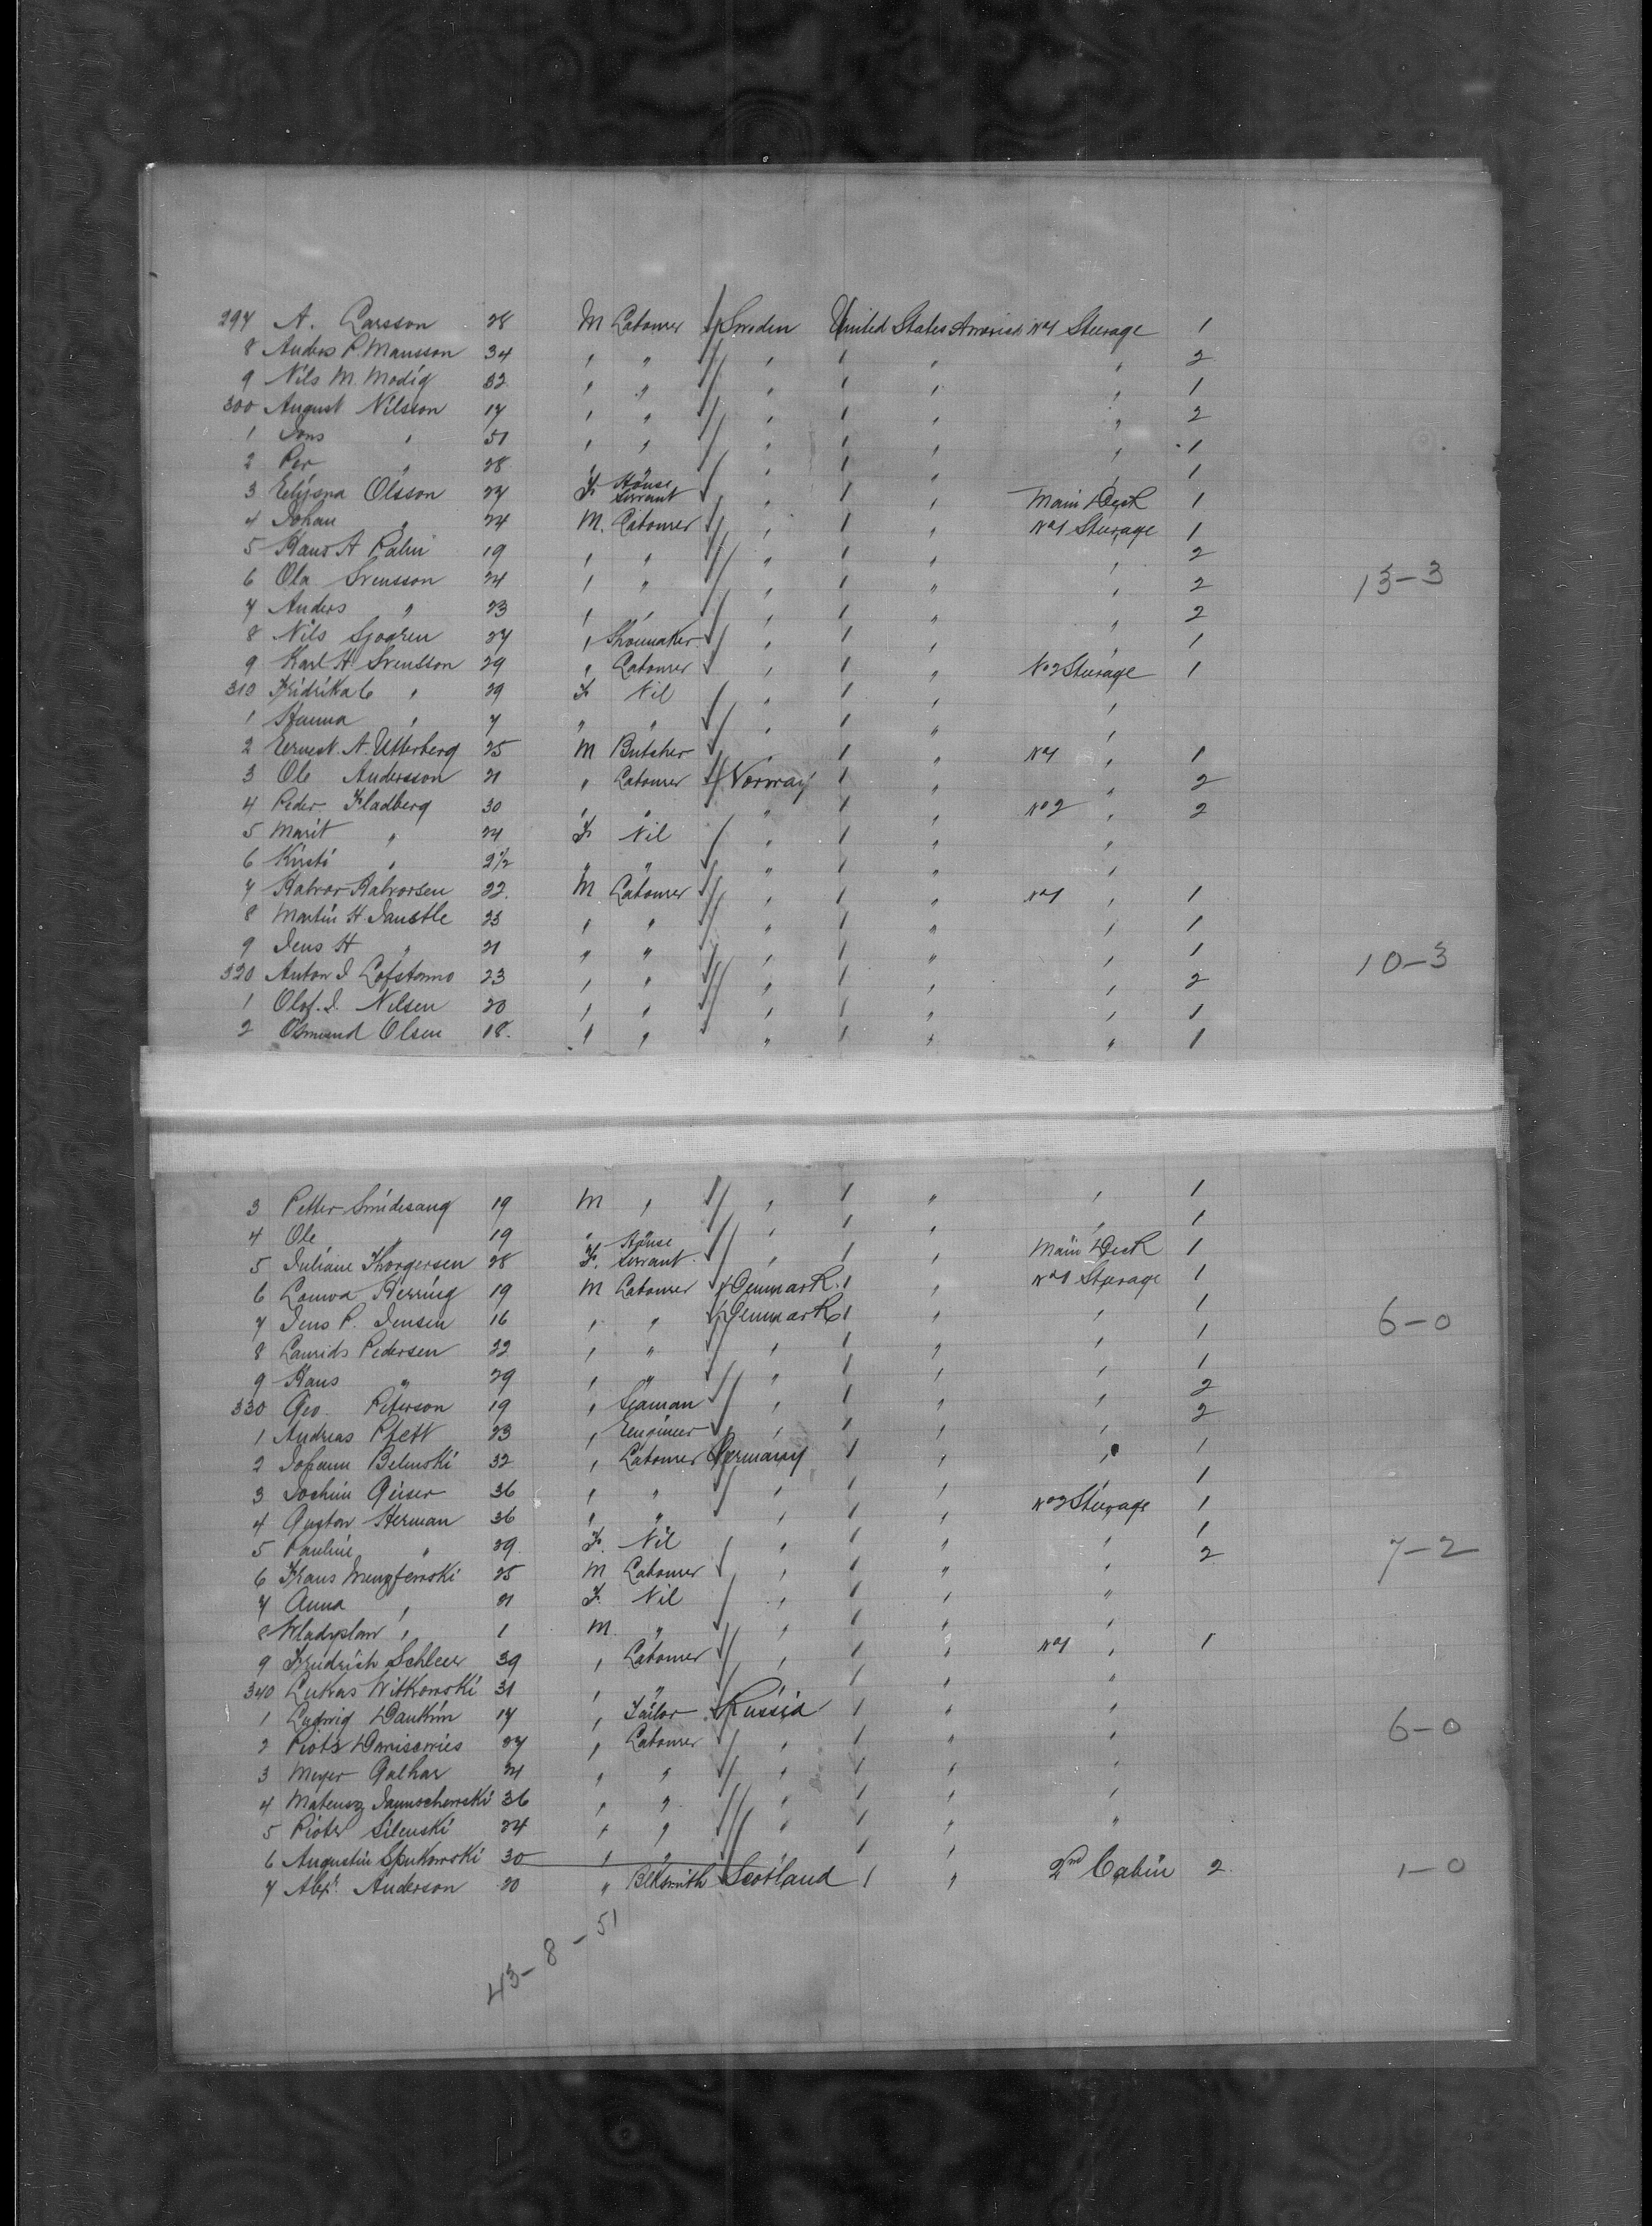 297 A. Larsson 28 M Labourer Sweden United States America No 1 Steerage 1
8 Anders P. Mansson 34 " " " " " " 2
9 Nils M. Modig 32 " " " " " " 1
300 August Nilsson 17 " " " " " " 2
1 Jons " 51 " " " " " " 1
2 Per " 28 " " " " " " 1
3 Olsson 27 F House Servant " " " Main Deck 1
4 Johan " 24 M. Labourer " " " No 1 Steerage 1
5 Hans A Palm 19 " " " " " " 2
6 Ola Svensson 24 " " " " " " 2
7 Anders " 23 " " " " " " 2
8 Nils Sjogren 27 " Shoemaker " " " " 1
9 Karl H. Svensson 29 " Labourer " " " No 2 Steerage 1
310 Fridrika C " 29 F Nil " " " "
1 Hanna " 7 " " " " " "
2 Ernest. A. Utterberg 25 M Butcher " " " No 1 " 1
3 Ole Andersson 21 " Labourer Norway " " " 2
4 Peder Fladberg 30 " " " " " No 2 " 2
5 Marit " 24 F Nil " " " "
6 Kirsti " 2 1/2 " " " " " "
7 Halvor Halvorsen 22. M Labourer " " " No 1 " 1
8 Martin H. 23 " " " " " " 1
9 Jens H " 21 " " " " " " 1
320 Anton J 23 " " " " " " 2
1 Olof. J. Nilsen 20 " " " " " " 1
2 Osmund Olsen 18. " " " " " " 1
13-3
10-3
3 Petter Smidesang 19 M " " " " " 1
4 Ole " 19 " " " " " " 1
5 Juliane Thorgersen 28 F. House Servant " " " Main Deck 1
6 Herring 19 M Labourer Denmark " " No 1 Steerage 1
7 Jens P. Jensen 16 " " Denmark " " " 1
8 Laurids Pedersen 22 " " " " " " 1
9 Hans " 29 " " " " " " 1
330 Geo. Peterson 19 " Seaman " " " " 2
1 Andreas 23 " Engineer " " " " 2
2 Johann Belinski 32 " Labourer Germany " " " 1
3 Jochim Geiser 36 " " " " " " 1
4 Gustav Herman 36 " " " " " No 2 Steerage 1
5 Pauline " 29. F. Nil " " " " 1
6 25 M Labourer " " " " 2
7 Anna " 21 F. Nil " " " "
8 Wladyslaw " 1 M. " " " " "
9 Friedrich Schleer 39 " Labourer " " " No 1 " 1
340 Lukas Witkowski 31 " " " " " "
1 Ludwig 17 " Tailor Russia " " "
2 Piotr 27 " Labourer " " " "
3 Meyer 21 " " " " " "
4 Mateusz 36 " " " " " "
5 Pioter Silenski 24 " " " " " "
6 Augustin 30 " " " " "
7 Alexr. Anderson 20 " Blksmith Scotland " " 2nd Cabin 2
6-0
7-2
6-0
1-0
43-8-51